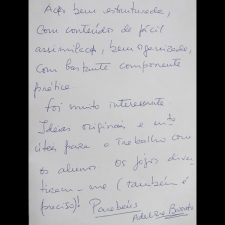 Ação bem estruturada,
com conteúdos de fácil
assimilação, bem organizada,
com bastante componente
prática.
Foi muito interessante.
Ideias originais e mto
úteis para o trabalho com
os alunos. Os jogos diver
tiram-me (também é
preciso)! Parabéns
Barreto